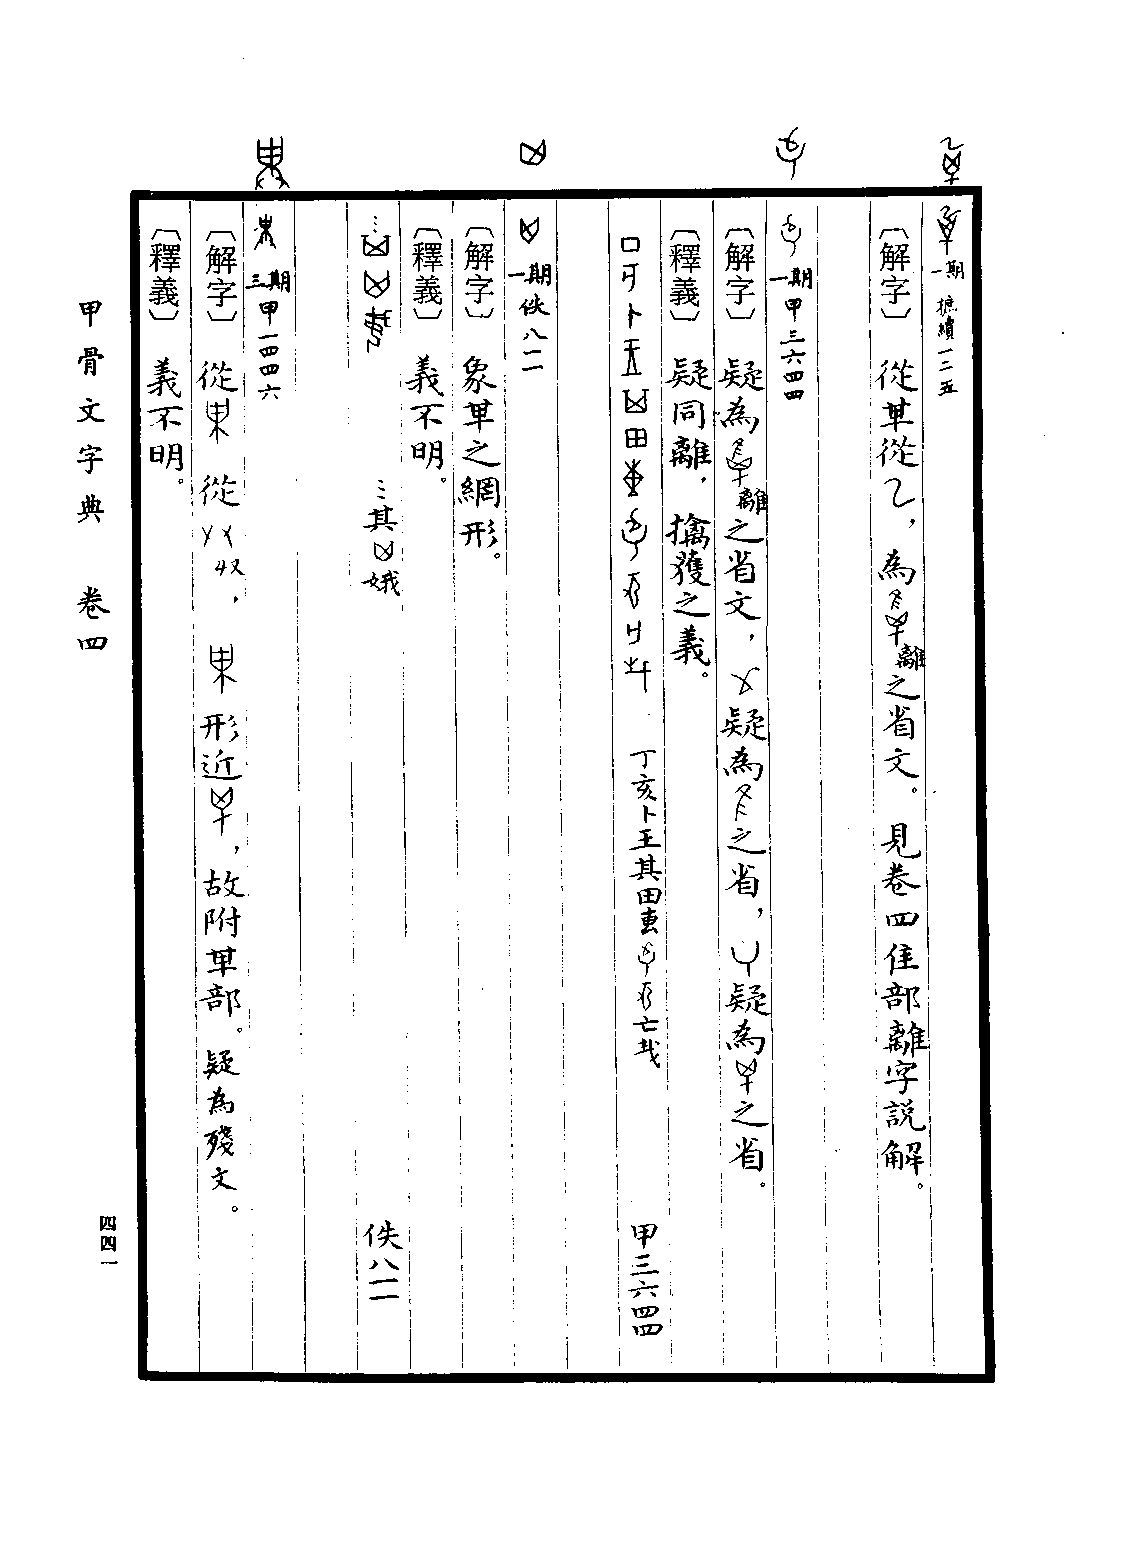 一期 摭續一二五
〔解字〕 從𠦒從乙，為離之省文。見卷四隹部離字説解。
一期 甲三六四四
〔解字〕 疑為離之省文，疑為之省，疑為之省。
〔釋義〕 疑同離，擒獲之義。
丁亥卜王其田叀亡𢦏 甲三六四四
一期 佚八一一
〔解字〕 象𠦒之網形。
〔釋義〕 義不明。
…其娥 佚八一一
三期 甲一四四六
〔解字〕 從從収，形近，故附𠦒部。疑為殘文。
〔釋義〕 義不明。
甲骨文字典 卷四
四四一